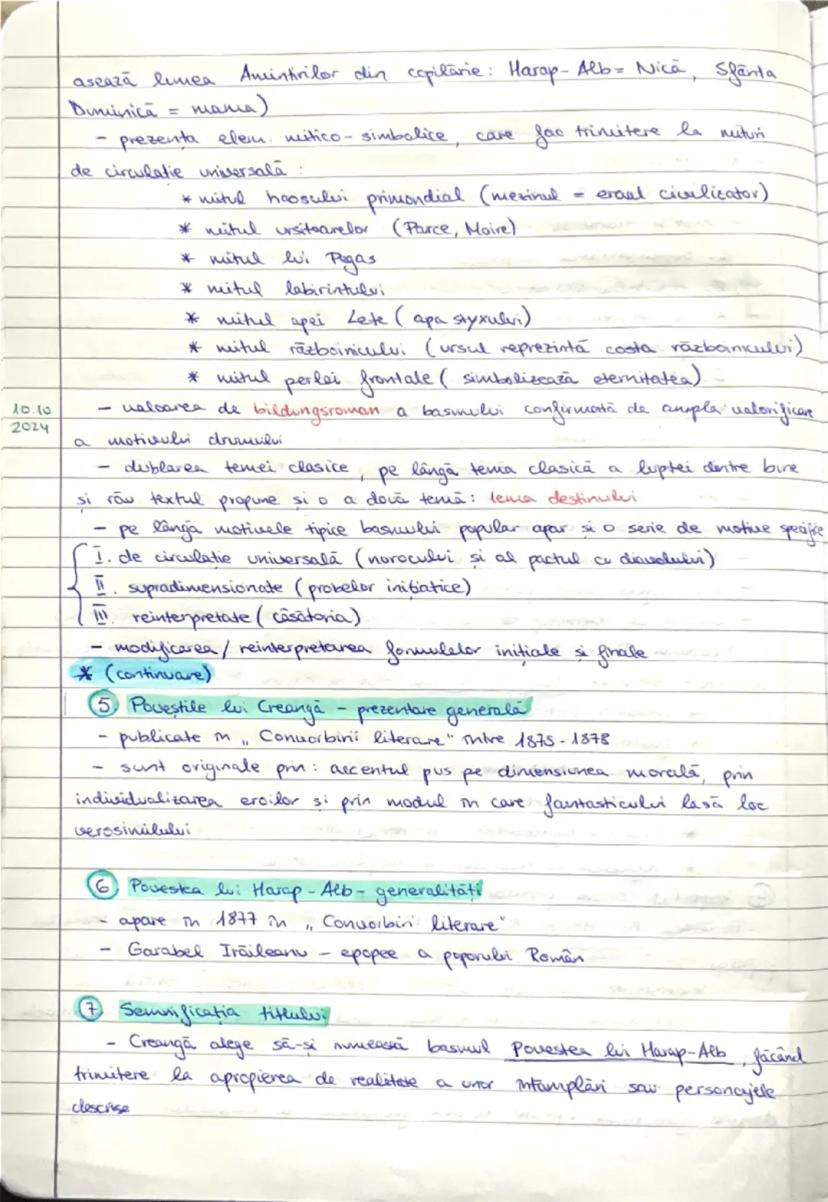 asează lumea Amintirilor din copilărie: Harap-Alb = Nică, Sfânta
Duminică = mama)
- prezența elem. mitico-simbolice, care fac trimitere la mituri
de circulație universală :
* mitul haosului primordial (mezinul = eroul civilizator)
* mitul ursitoarelor (Parce, Moire)
* mitul lui Pegas
* mitul labirintului
* mitul apei Lete ( apa styxului)
* mitul războinicului (ursul reprezintă casta războinicului)
* mitul perlei frontale ( simbolizează eternitatea)
10.10
2024
- valoarea de bildungsroman a basmului confirmată de ampla valorificare
a motivului drumului
- dublarea temei clasice, pe lângă tema clasică a luptei dintre bine
și rău textul propune și o a doua temă: tema destinului
- pe lângă motivele tipice basmului popular apar și o serie de motive specifice
I. de circulație universală (norocului și al pactul cu diavolului)
II. supradimensionate (probelor inițiatice)
III. reinterpretate ( căsătoria)
- modificarea / reinterpretarea formulelor inițiale și finale
* (continuare)
5 Poveștile lui Creangă - prezentare generală
- publicate în „ Convorbirii literare" între 1875-1878
- sunt originale prin: accentul pus pe dimensiunea morală, prin
individualizarea eroilor și prin modul în care fantasticului lasă loc
verosimilului
6 Povestea lui Harap-Alb - generalități
- apare în 1877 în „ Convorbiri literare"
- Garabel Irăileanu - epopee a poporului Român
7 Semnificația titlului
- Creangă alege să-și numească basmul Povestea lui Harap-Alb, făcând
trimitere la apropierea de realitate a unor întamplări sau personajele
descrise